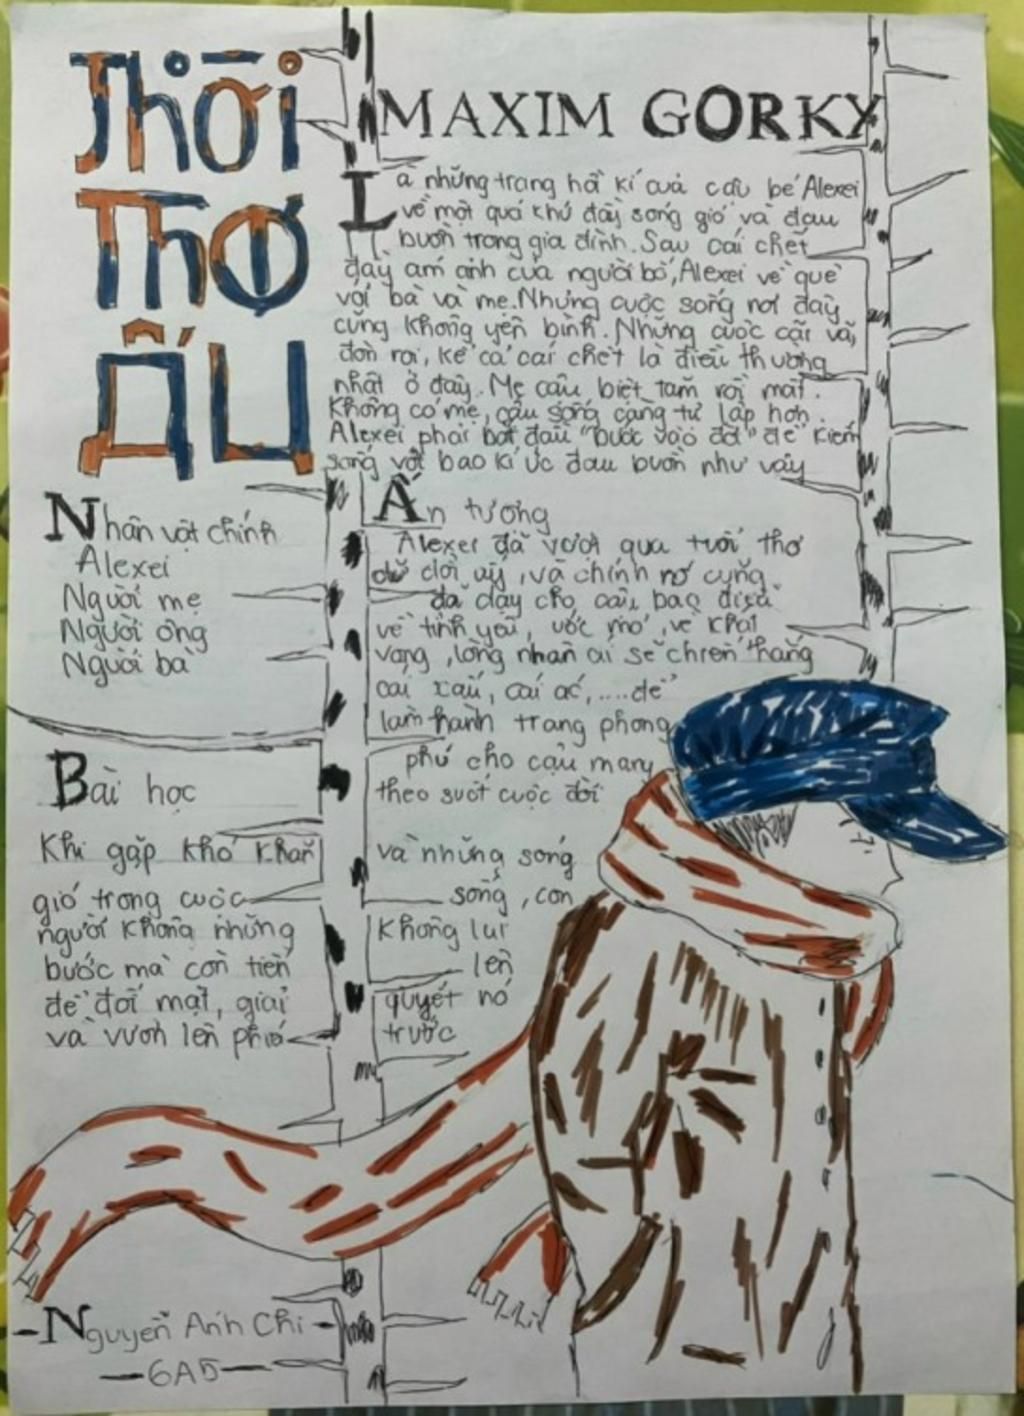 Thời
Thơ
Ấu
MAXIM GORKY
Là những trang hồi kí của cậu bé Alexei
về một quá khứ đầy sóng gió và đau
buồn trong gia đình. Sau cái chết
đầy ám ảnh của người bố, Alexei về quê
với bà và mẹ. Nhưng cuộc sống nơi đây
cũng không yên bình. Những cuộc cãi vã,
đòn roi, kể cả cái chết là điều thường
nhật ở đây. Mẹ cậu biệt tăm rồi mất.
Không có mẹ, cậu sống càng tự lập hơn.
Alexei phải bắt đầu "bước vào đời" để kiếm
sống với bao kí ức đau buồn như vậy
Nhân vật chính
Alexei
Người mẹ
Người ông
Người bà
Ấn tượng
Alexei đã vượt qua tuổi thơ
dữ dội ấy, và chính nó cũng
đã dạy cho cậu bao điều
về tình yêu, ước mơ, về khát
vọng, lòng nhân ái sẽ chiến thắng
cái xấu, cái ác,.... để
làm hành trang phong
phú cho cậu mang
theo suốt cuộc đời
Bài học
Khi gặp khó khăn và những sóng
gió trong cuộc sống, con
người không những không lùi
bước mà còn tiến lên
để đối mặt, giải quyết nó
và vươn lên phía trước
-Nguyễn Anh Chi-
-6A5-